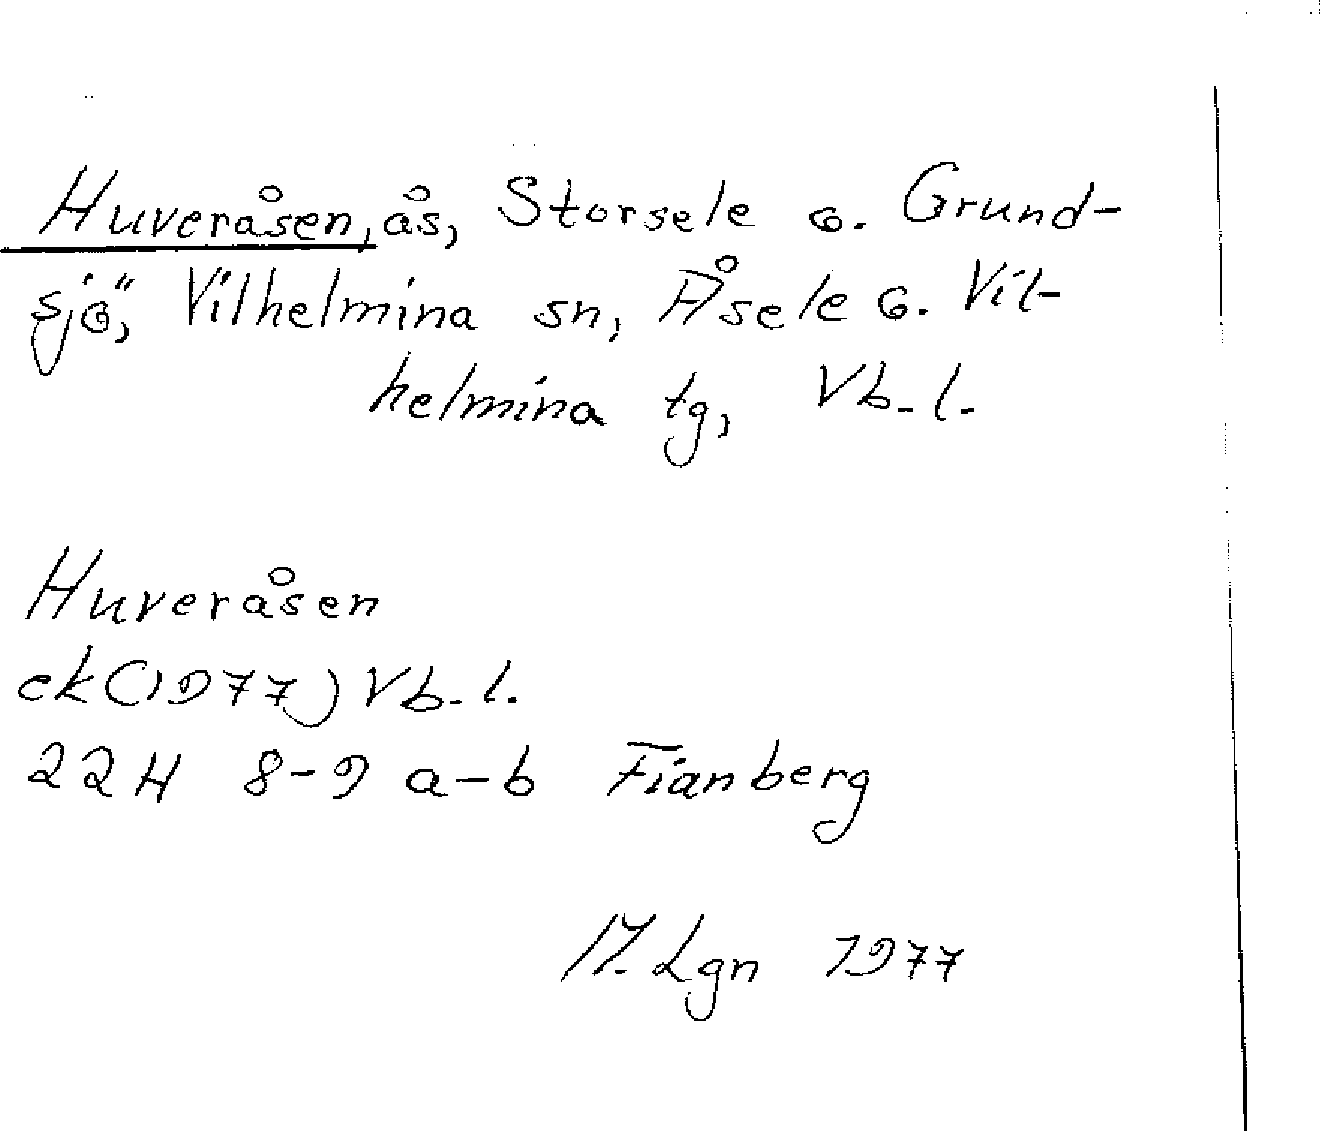 Huveråsen, ås, Storsele o. Grund-
sjö, Vilhelmina sn, Åsele o. Vil-
helmina tg, Vb. l.
Huveråsen
ek (1977) Vb. l.
22H 8-9 a-b Fianberg
M. Lgn 1977